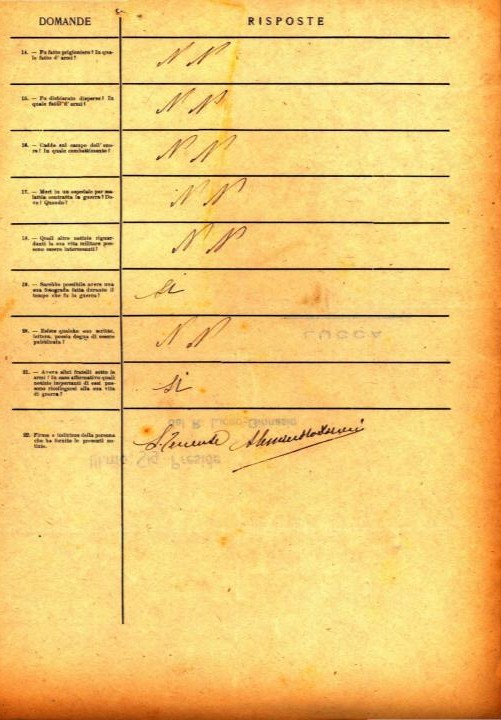 DOMANDE
RISPOSTE
14. — Fu fatto prigioniero? In qua-
le fatto d'armi?
N N
15. — Fu dichiarato disperso? In
quale fatto d'armi?
N N
16. — Cadde sul campo dell'ono-
re? In quale combattimento?
N N
17. — Morì in un ospedale per ma-
lattia contratta in guerra? Do-
ve? Quando?
N N
18. — Quali altre notizie riguar-
danti la sua vita militare pos-
sono essere interessanti?
N N
19. — Sarebbe possibile avere una
sua fotografia fatta durante il
tempo che fu in guerra?
si
LUCCA
20. — Esiste qualche suo scritto,
lettera, poesia degna di essere
pubblicata?
N N
21. — Aveva altri fratelli sotto le
armi? In caso affermativo quali
notizie importanti di essi pos-
sono ricollegarsi alla sua vita
di guerra?
si
22. Firma e indirizzo della persona
che ha fornito le presenti no-
tizie.
del R. Liceo-Ginnasio
Ill.mo Sig. Preside